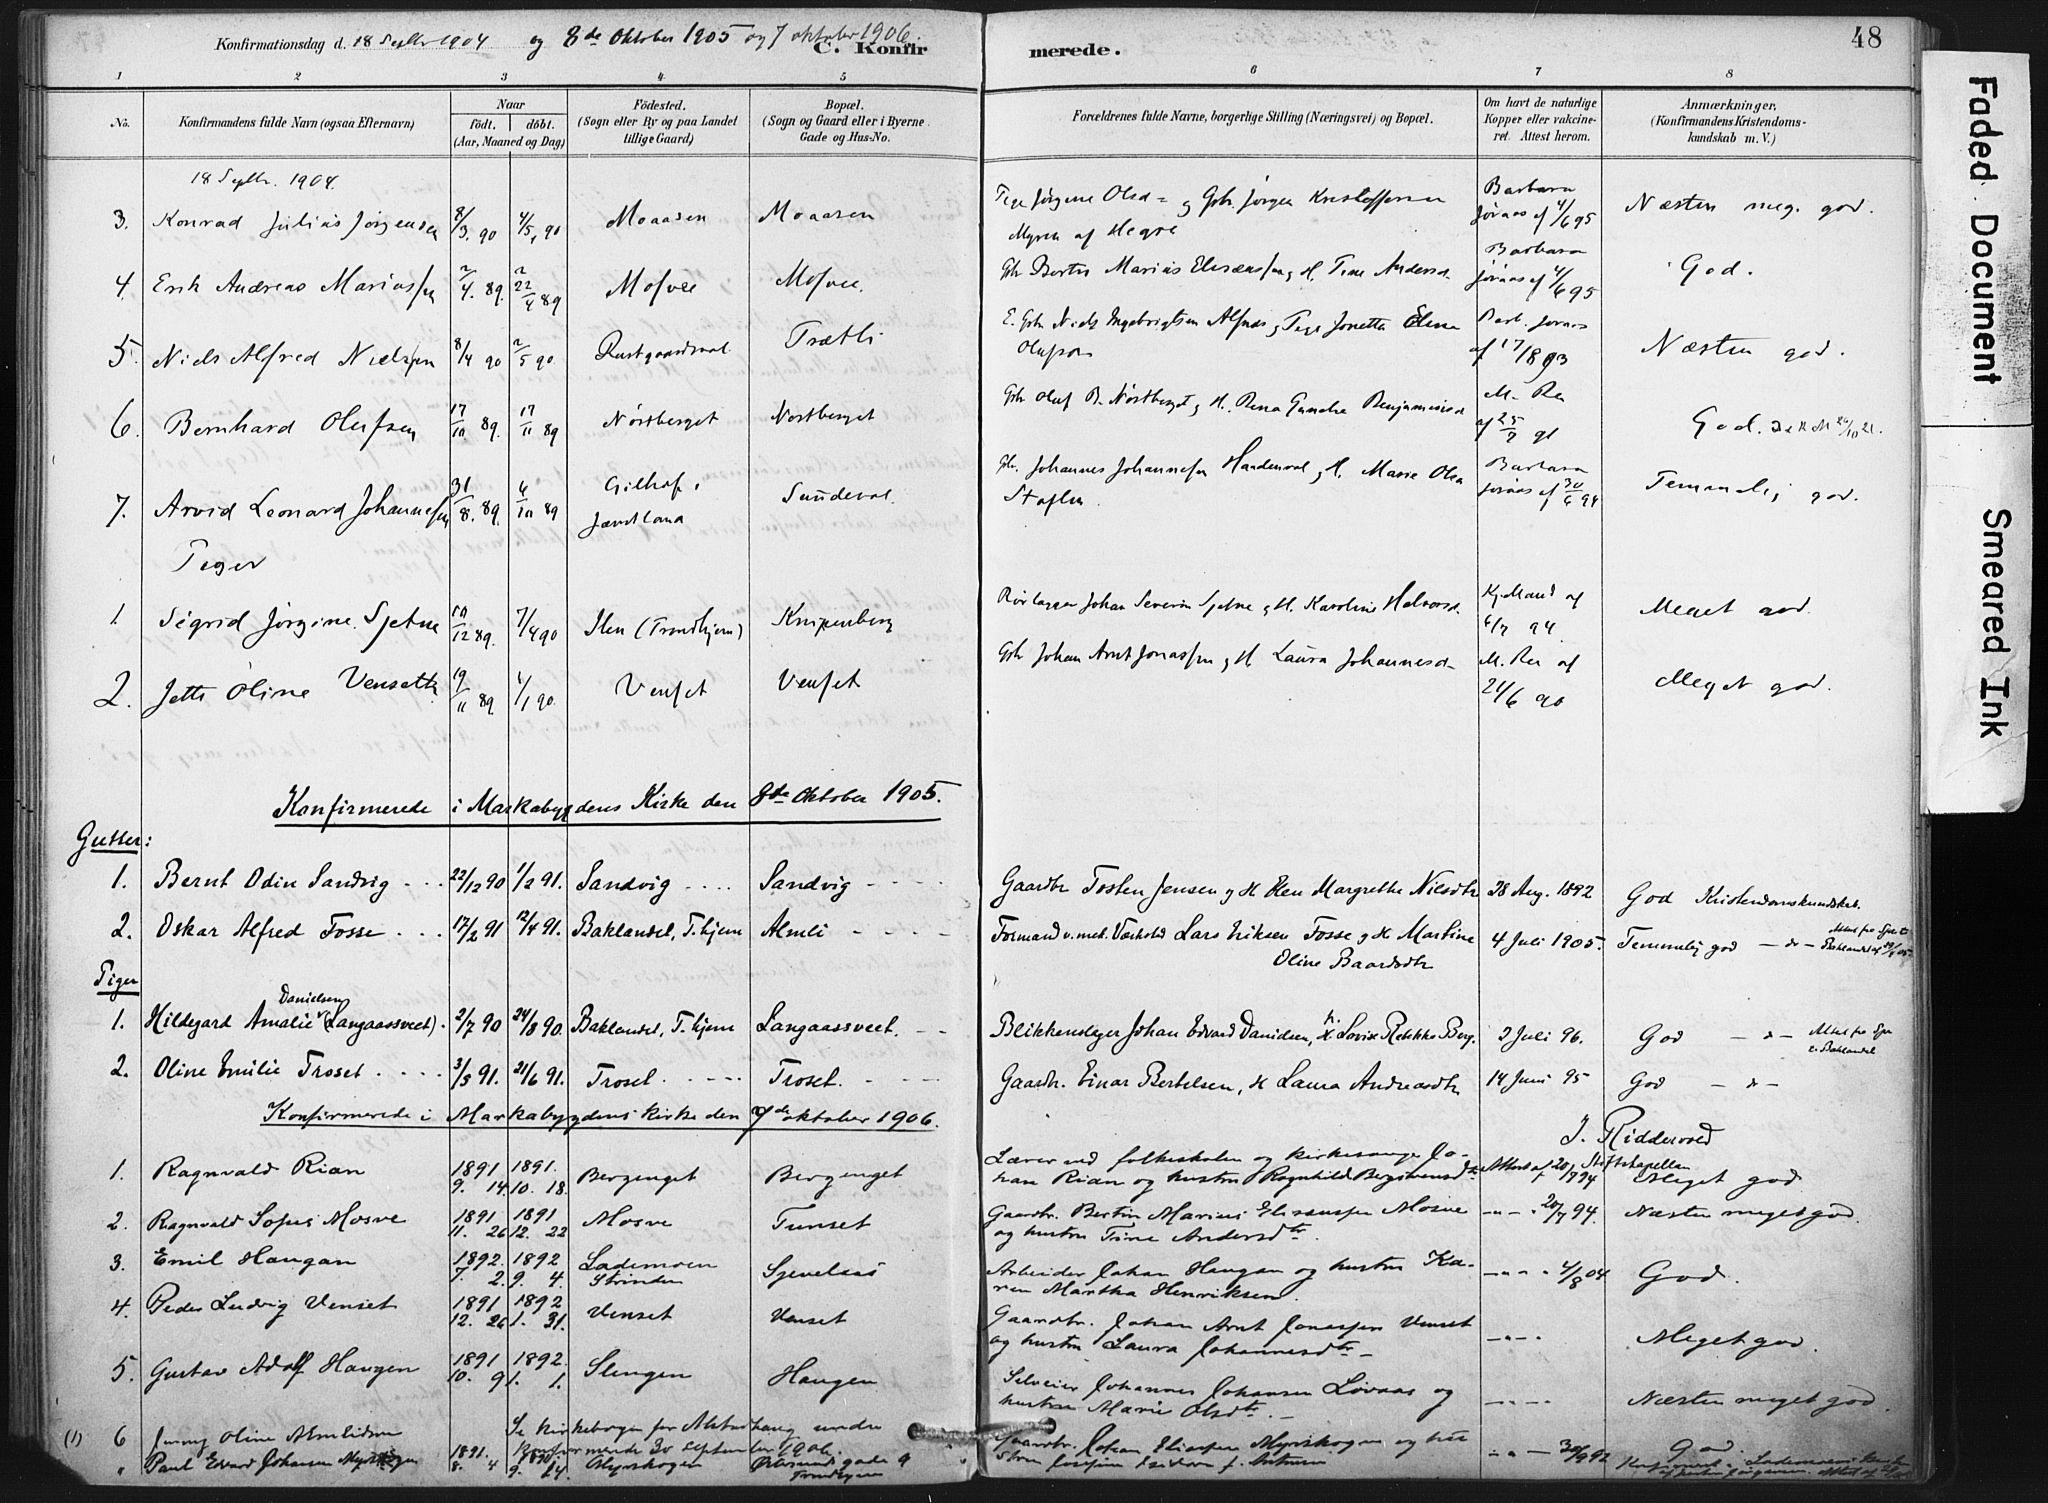 Konfirmationsdag d. 18 Septbr 1904 og 8de Oktober 1905 og 7 oktober 1906.
C. Konfirmerede.
48
1 2 3 4 5 6 7 8
No.
Konfirmandens fulde Navn (ogsaa Efternavn)
Naar
födt. döbt.
(Aar, Maaned og Dag)
Födested.
(Sogn eller By og paa Landet tillige Gaard)
Bopæl.
(Sogn og Gaard eller i Byerne Gade og Hus-No.
Forældrenes fulde Navne, borgerlige Stilling (Næringsvei) og Bopæl.
Om havt de naturlige Kopper eller vaccineret. Attest herom.
Anmærkninger,
(Konfirmandens Kristendomskundskab m. V.)
18 Septbr. 1904.
3. Konrad Julius Jørgensen 8/3. 90 4/5, 90 Moaasen Moaasen Pige Jørgine Olsd= og Gbr Jørgen Kristoffersen Myren af Hegre Barbara Jøraas af 4/6 95 Næsten meg. god.
4. Erik Andreas Mariussen 2/4. 89. 22/4 89 Mosvee Mosvee. Gbr Bertin Marius Elisæussen og H. Tine Andersd. Barbara Jøraas af 4/6 95 God.
5. Niels Alfred Nielsen 8/4 90 2/5 90. Rustgaardsval Trætli E. Gbr Niels Ingebrigtsen Alfnes og Pige Jonetta Elena Olufson Barb. Jøraas af 17/8 93 Næsten god.
6. Bernhard Olufsen 17/10 89. 17/11 89 Nørdberget Nordberget Gbr Oluf B. Nordberget og H. Rena Gundra Benjaminsd M. Re af 25/7 91 God.
7. Arvid Leonard Johannessen 31/8. 89. 6/10 89 Gilhof i Jæmtland Sundeval. Gbr. Johannes Johannessen og H. Masse Olsd Barbara Jøraas af 30/6 94 Temmelig god.
Piger
1. Sigrid Jørgine Sjetne 12 89. 7/4 90 Ilen (Trondhjem) Knipenberg Rørlægger Johan Severin Sjetne og H. Karoline Halvorsd. 6/7 94. Meget god.
2. Jette Oline Vensetth 19/11 89. 1/1 90. Venset Venset Gbr Johan Arnt Jonassen og H Laura Johannesd- M. Re af 21/6 90 Meget god.
Konfirmerede i Markabygdens Kirke den 8de Oktober 1905.
Gutter:
1. Bernt Odin Sandvig 22/12 90 1/2 91. Sandvig Sandvig Gaardbr Tosten Jensen og H Elen Margrethe Nilsdtr 28 Aug. 1892 God Kristendomskundskab.
2. Oskar Alfred Fosse 17/2 91 12/4 91. Baklandet, T.hjem Almli Formand v. mek. Værksted Lars Eriksen Fosse og H Martine Oline Baardsdtr 4 Juli 1905. Temmelig god — " —
Piger
1. Hildegard Amalie Danielsen (Langaassveet). 2/7 90 24/8 90. Baklandet, T.hjem Langaassveet. Blikkenslager Johan Edvard Danielsen, H. Lovise Rebekka Berg. 2 Juli 96. God — " — Attest fra Spr. t. Baklandet
2. Oline Emilie Troset 3/5 91. 21/6 91. Troset Troset. Gaardbr. Einar Bertelsen, H Laura Andreasdtr 14 Juni 95 God — " —
Konfirmerede i Markabygdens kirke den 7de oktober 1906.
J. Riddervold
Stiftskapellan
1. Ragnvald Rian 1891 9. 14. 1891. 10. 18. Bergenget Bergenget Lærer ved folkeskolen og kirkesanger Johan Rian og hustru Ragnhild Bergsvensdtr. Attest af 20/7 94 Meget god
2. Ragnvald Sofus Mosve 1891 11. 26 1891 12. 22 Mosve Tunset Gaardbr. Bertin Marius Elisæussen Mosve og hustru Tine Andersdtr. — " — " 20/7 94. Næsten meget god.
3. Emil Haugan 1892. 7. 2. 1892 9. 4. Lademoen Strinden Sjevelaas Arbeider Johan Haugan og hustru Karen Martha Henriksen. — " — " 4/8 04. God.
4. Peder Ludvig Venset 1891 12. 26 1892 1. 31. Venset Venset Gaardbr. Johan Arnt Jonassen Venset og hustru Laura Johannesdtr — — " — " Meget god.
5. Gustav Adolf Haugen 1891 10. 9 1892. 1. 1. Slengen Haugen Selveier Johannes Johansen Løvaas og hustru Marie Olsdtr. — — " — " — Næsten meget god.
(1) 6 Jenny Oline Almlidmo Se kirkebogen for Alstadhaug under konfirmerede 30 September 1906.
" Paul Edvard Johansen Myrskogen 1891. 8. 4 9. 14. Myrskogen Østersunds gade 9 Trondhjem Gaardbr. Johan Eliassen Myrskogen og hustru — " — 30/9 92 God.
Faded Document
Smeared Ink